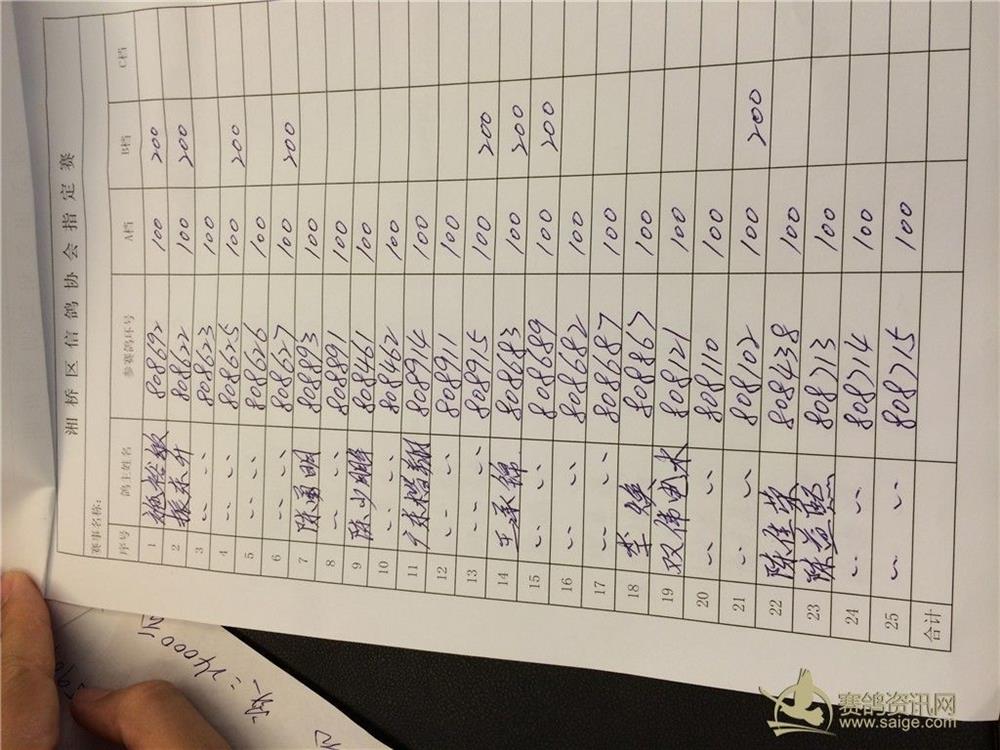 湘桥区信鸽协会指定赛
赛事名称:
序号 鸽主姓名 参赛鸽环号 A档 B档 C档
1 808692 100 200
2 振东升 808622 100 200
3 〃 〃 808623 100
4 〃 〃 808625 100 200
5 〃 〃 808626 100
6 〃 〃 808627 100 200
7 陈勇明 808893 100
8 〃 〃 808891 100
9 陈少鹏 808461 100
10 〃 〃 808462 100
11 808914 100
12 〃 〃 808911 100
13 〃 〃 808915 100 200
14 王承锦 808683 100 200
15 〃 〃 808689 100 200
16 〃 〃 808682 100
17 〃 〃 808687 100
18 808867 100
19 双伟电水 808121 100
20 〃 〃 808110 100
21 〃 〃 808102 100 200
22 陈佳荣 808438 100
23 陈益熙 808713 100
24 〃 〃 808714 100
25 〃 〃 808715 100
合计
=24000元
赛鸽资讯网
www.saige.com